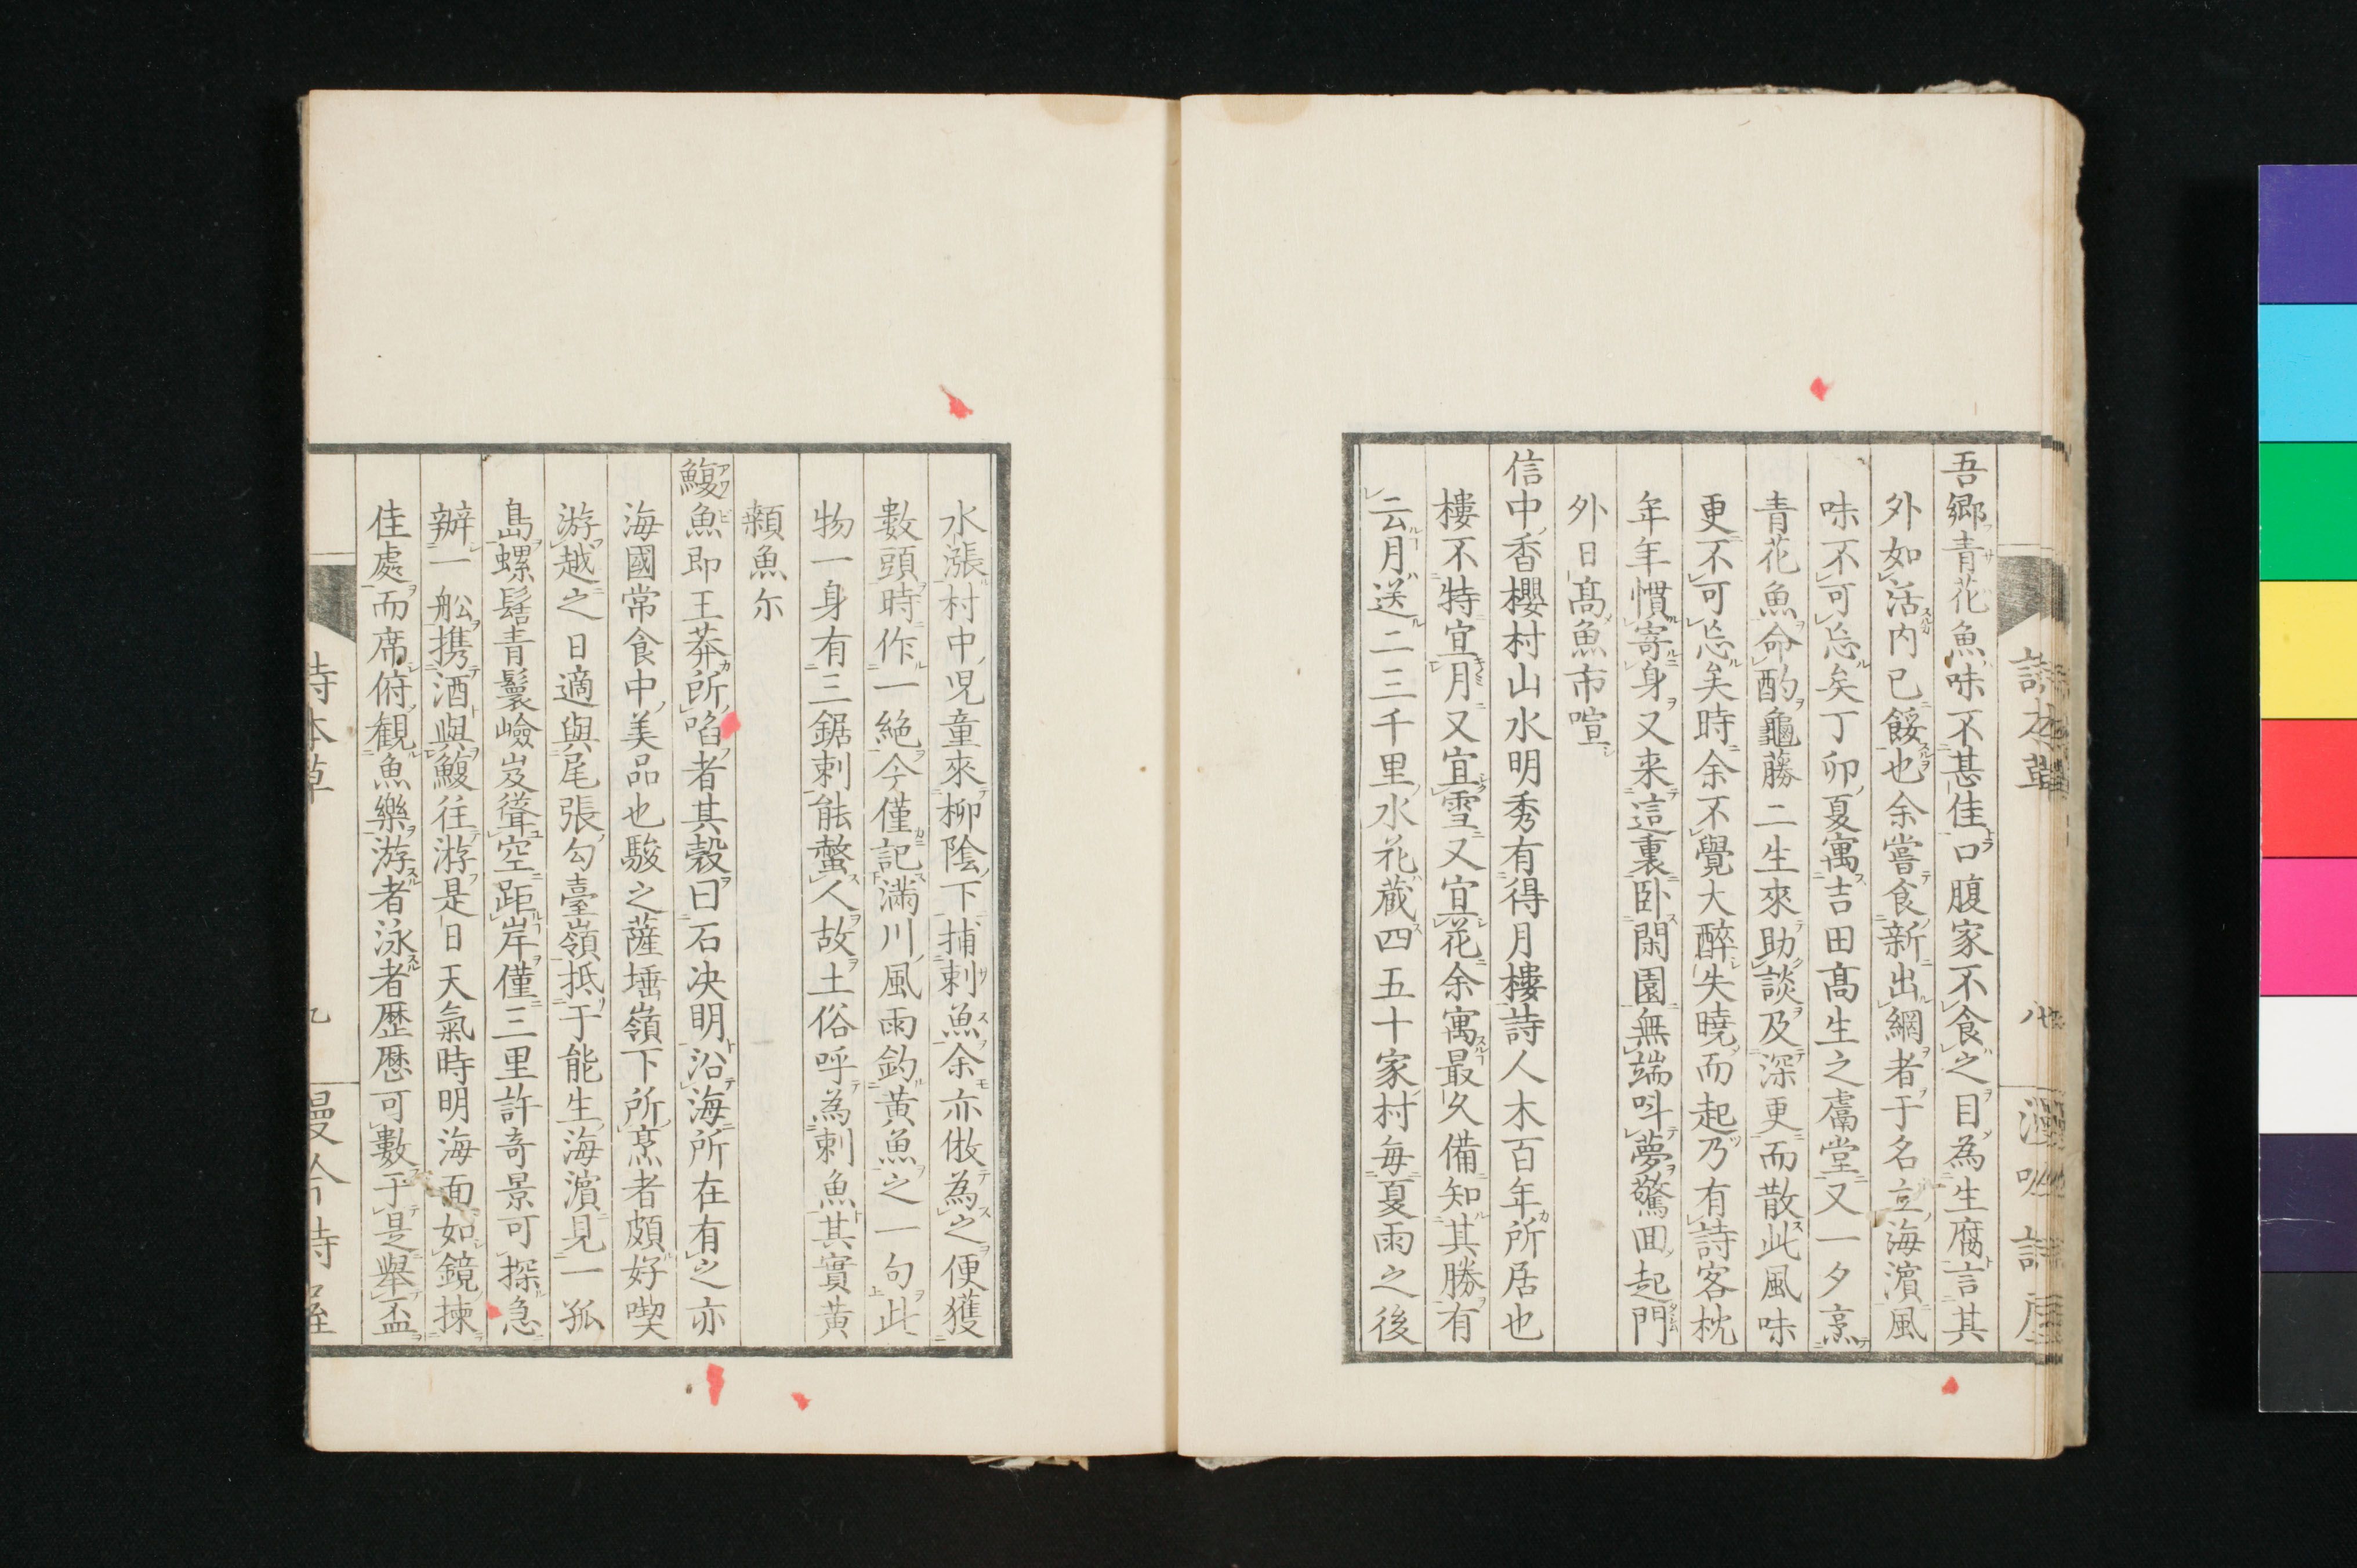 吾鄉青花魚味不甚佳口腹家不食之目為生腐言其
外如活內已餒也余嘗食新出網者于名立海濱風
味不可忘矣丁卯夏寓吉田髙生之鬳堂又一夕烹
青花魚命酌龜藤二生來助談及深更而散此風味
更不可忘矣時余不覺大醉失曉而起乃有詩客枕
年年慣寄身又来這裏卧閑園無端呌夢驚囬起門
外日髙魚市喧
信中香櫻村山水明秀有得月樓詩人木百年所居也
樓不特宜月又宜雪又宜花余寓最久備知其勝有
云月送二三千里水花蔵四五十家村每夏雨之後
水漲村中児童來柳陰下捕刺魚余亦倣為之便獲
數頭時作一絶今僅記滿川風雨釣黄魚之一句此
物一身有三鋸刺能螫人故土俗呼為刺魚其實黄
顙魚尓
鰒魚即王莽所啗者其殼曰石决明沿海所在有之亦
海國常食中美品也駿之薩埵嶺下所烹者頗好喫
游越之日適與尾張勾臺嶺抵于能生海濱見一孤
島螺髻青鬟嶮岌聳空距岸僅三里許奇景可探急
辦一舩携酒與鰒往游是日天氣時明海面如鏡揀
佳處而席俯観魚樂游者泳者歴歴可數于是舉盃
詩本草
九